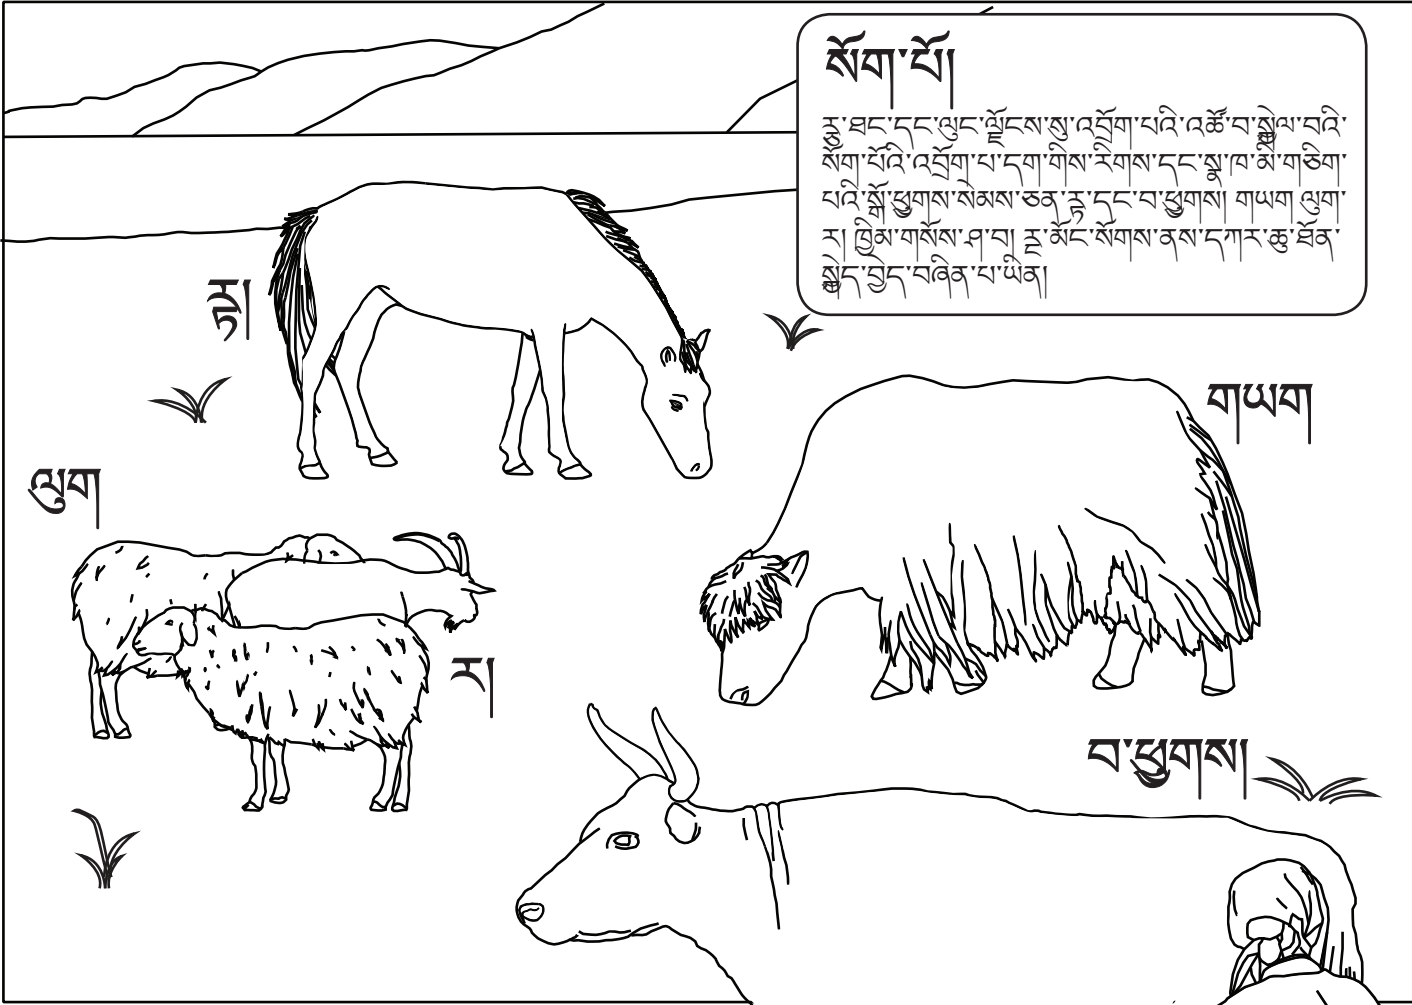 སོག་པོ།
རྩྭ་ཐང་དང་ལུང་ལྗོངས་སུ་འབྲོག་པའི་འཚོ་བ་སྐྱེལ་བའི་
སོག་པོའི་འབྲོག་པ་དག་གིས་རིགས་དང་སྣ་ཁ་མི་གཅིག་
པའི་སྒོ་ཕྱུགས་སེམས་ཅན་རྟ་དང་བ་ཕྱུགས། གཡག ལུག་
ར། ཁྱིམ་གསོས་ཤ་བ། རྔ་མོང་སོགས་ནས་དཀར་ཆུ་ཐོན་
སྐྱེད་བྱེད་བཞིན་པ་ཡིན།
རྟ།
གཡག
ལུག
ར།
བ་ཕྱུགས།